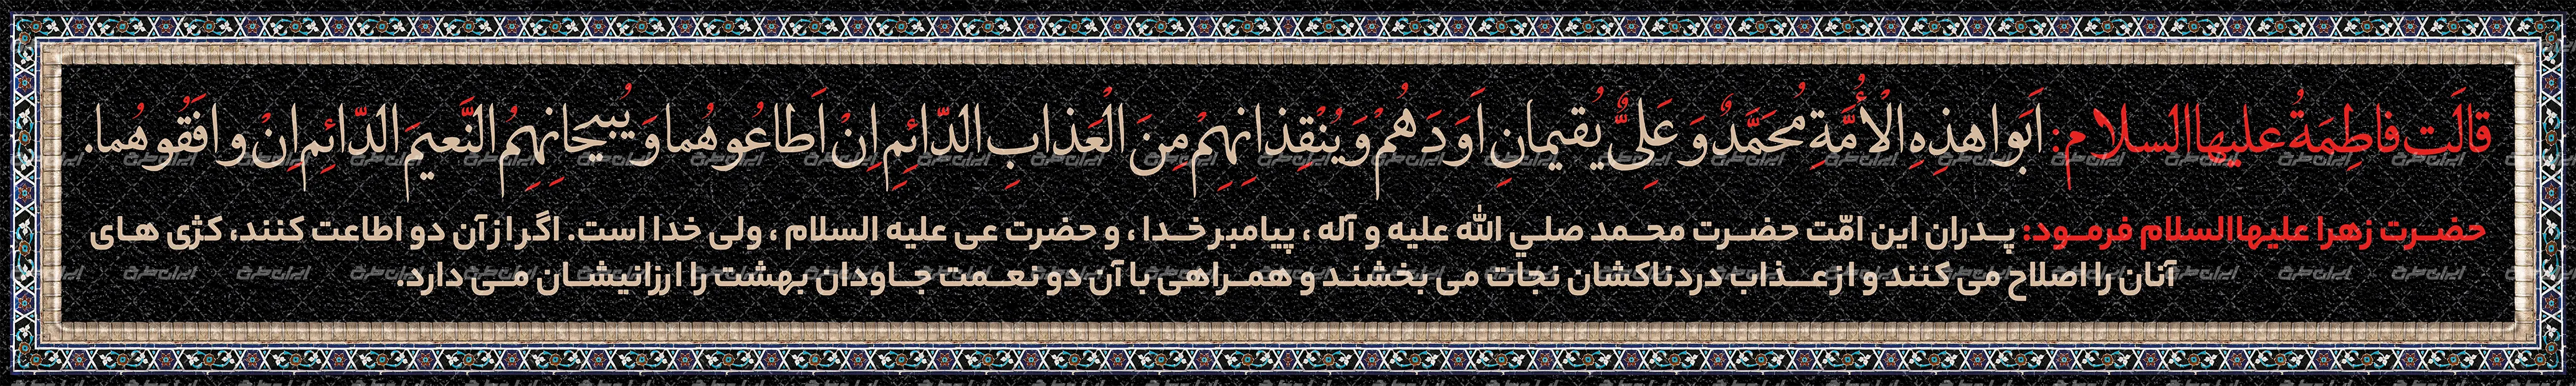 قالَت فاطِمَةُ علیهاالسلام: اَبَوا هذِهِ الْأُمَّةِ مُحَمَّدٌ وَ عَلِیٌّ یُقیمانِ اَوَدَهُمْ وَ یُنْقِذانِهِمْ مِنَ الْعَذابِ الدّائِمِ اِنْ اَطاعُوهُما وَ یُبیحانِهِمُ النَّعیمَ الدّائِمِ اِنْ وافَقُوهُما.
حضرت زهرا علیهاالسلام فرمود: پدران این امّت حضرت محمد صلي الله علیه و آله ، پیامبر خدا ، و حضرت عی علیه السلام ، ولی خدا است. اگر از آن دو اطاعت کنند، کژی های
آنان را اصلاح می کنند و از عذاب دردناکشان نجات می بخشند و همراهی با آن دو نعمت جاودان بهشت را ارزانیشان می دارد.